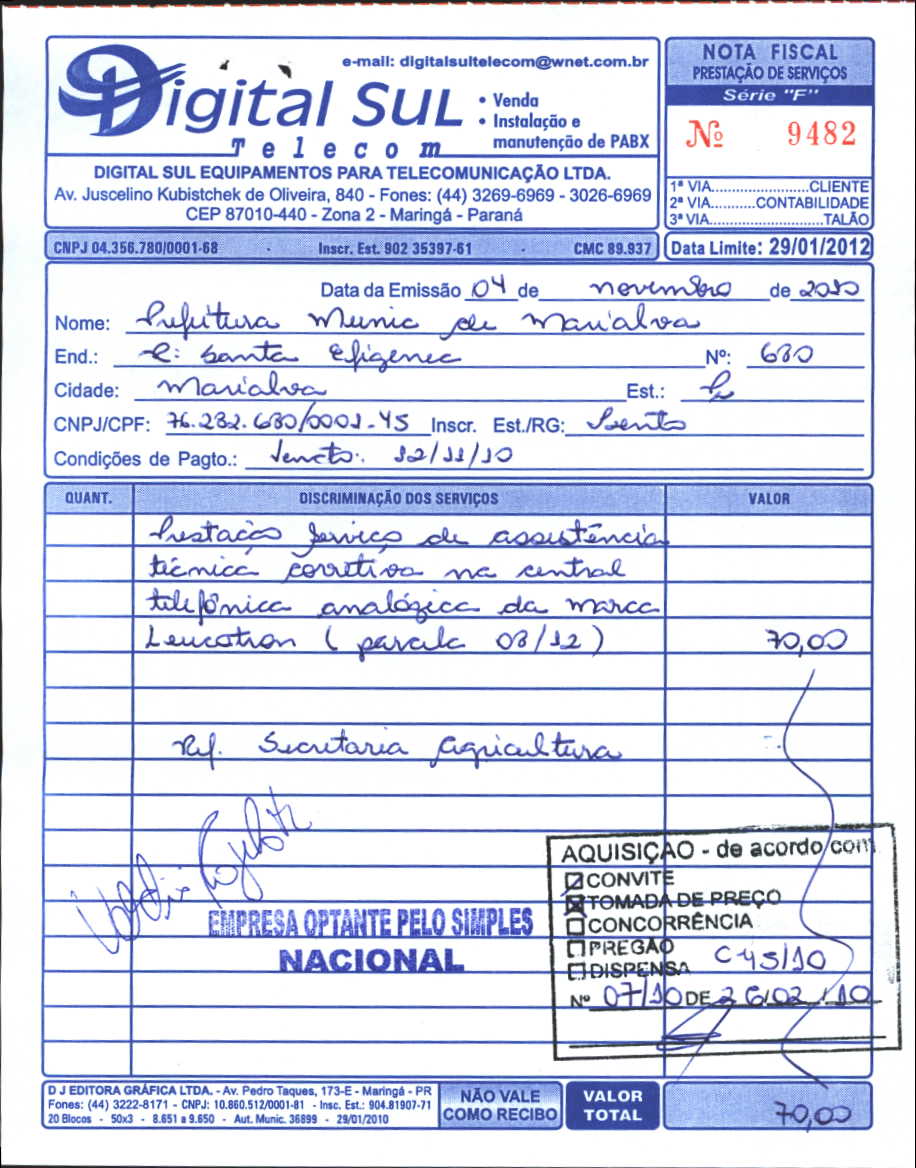 e-mail: digitalsultelecom@wnet.com.br
Digital Sul
Telecom
• Venda
• Instalação e
manutenção de PABX
DIGITAL SUL EQUIPAMENTOS PARA TELECOMUNICAÇÃO LTDA.
Av. Juscelino Kubistchek de Oliveira, 840 - Fones: (44) 3269-6969 - 3026-6969
CEP 87010-440 - Zona 2 - Maringá - Paraná
NOTA FISCAL
PRESTAÇÃO DE SERVIÇOS
Série "F"
Nº 9482
1ª VIA........................CLIENTE
2ª VIA...........CONTABILIDADE
3ª VIA............................TALÃO
CNPJ 04.356.780/0001-68 - Inscr. Est. 902 35397-61 - CMC 89.937
Data Limite: 29/01/2012
Data da Emissão 04 de novembro de 2010
Nome: Prefeitura Munic de Marialva
End.: R: Santa Efigenea Nº: 680
Cidade: Marialva Est.: Pr
CNPJ/CPF: 76.282.680/0001-45 Inscr. Est./RG: Isento
Condições de Pagto.: Vencto: 12/11/10
QUANT. DISCRIMINAÇÃO DOS SERVIÇOS VALOR
Prestação serviço de assistência
técnica corretiva na central
telefônica analógica da marca
Leucotron (parcela 08/12) 70,00
Ref. Secretaria Agricultura
EMPRESA OPTANTE PELO SIMPLES
NACIONAL
AQUISIÇÃO - de acordo com
CONVITE
TOMADA DE PREÇO
CONCORRÊNCIA
PREGÃO
DISPENSA C 45/10
Nº 07/10 DE 26/02/10
D J EDITORA GRÁFICA LTDA. - Av. Pedro Taques, 173-E - Maringá - PR
Fones: (44) 3222-8171 - CNPJ: 10.860.512/0001-81 - Insc. Est.: 904.81907-71
20 Blocos - 50x3 - 8.651 a 9.650 - Aut. Munic. 36899 - 29/01/2010
NÃO VALE
COMO RECIBO
VALOR
TOTAL
70,00